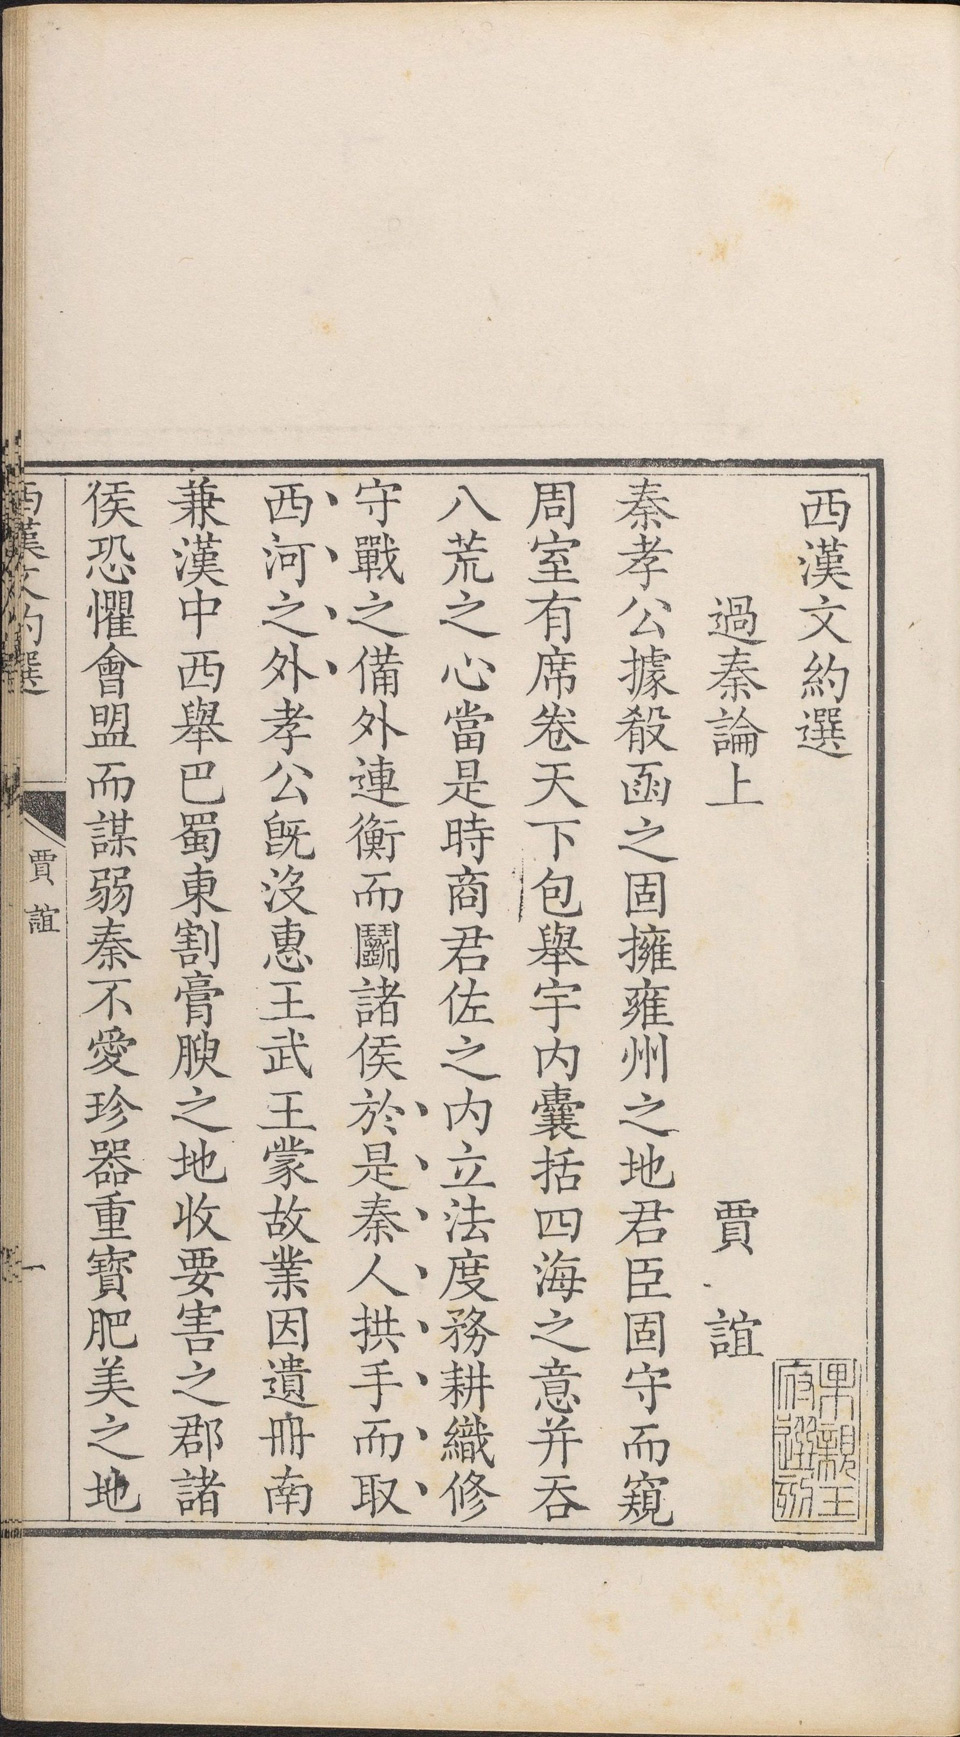 西漢文約選
過秦論上 賈誼
秦孝公據殽函之固擁雍州之地君臣固守而窺
周室有席卷天下包舉宇內囊括四海之意并吞
八荒之心當是時商君佐之內立法度務耕織修
守戰之備外連衡而鬬諸侯於是秦人拱手而取
西河之外孝公旣沒惠王武王蒙故業因遺冊南
兼漢中西舉巴蜀東割膏腴之地收要害之郡諸
侯恐懼會盟而謀弱秦不愛珍器重寶肥美之地
西漢文約選
賈誼
一
果親王
府選刊